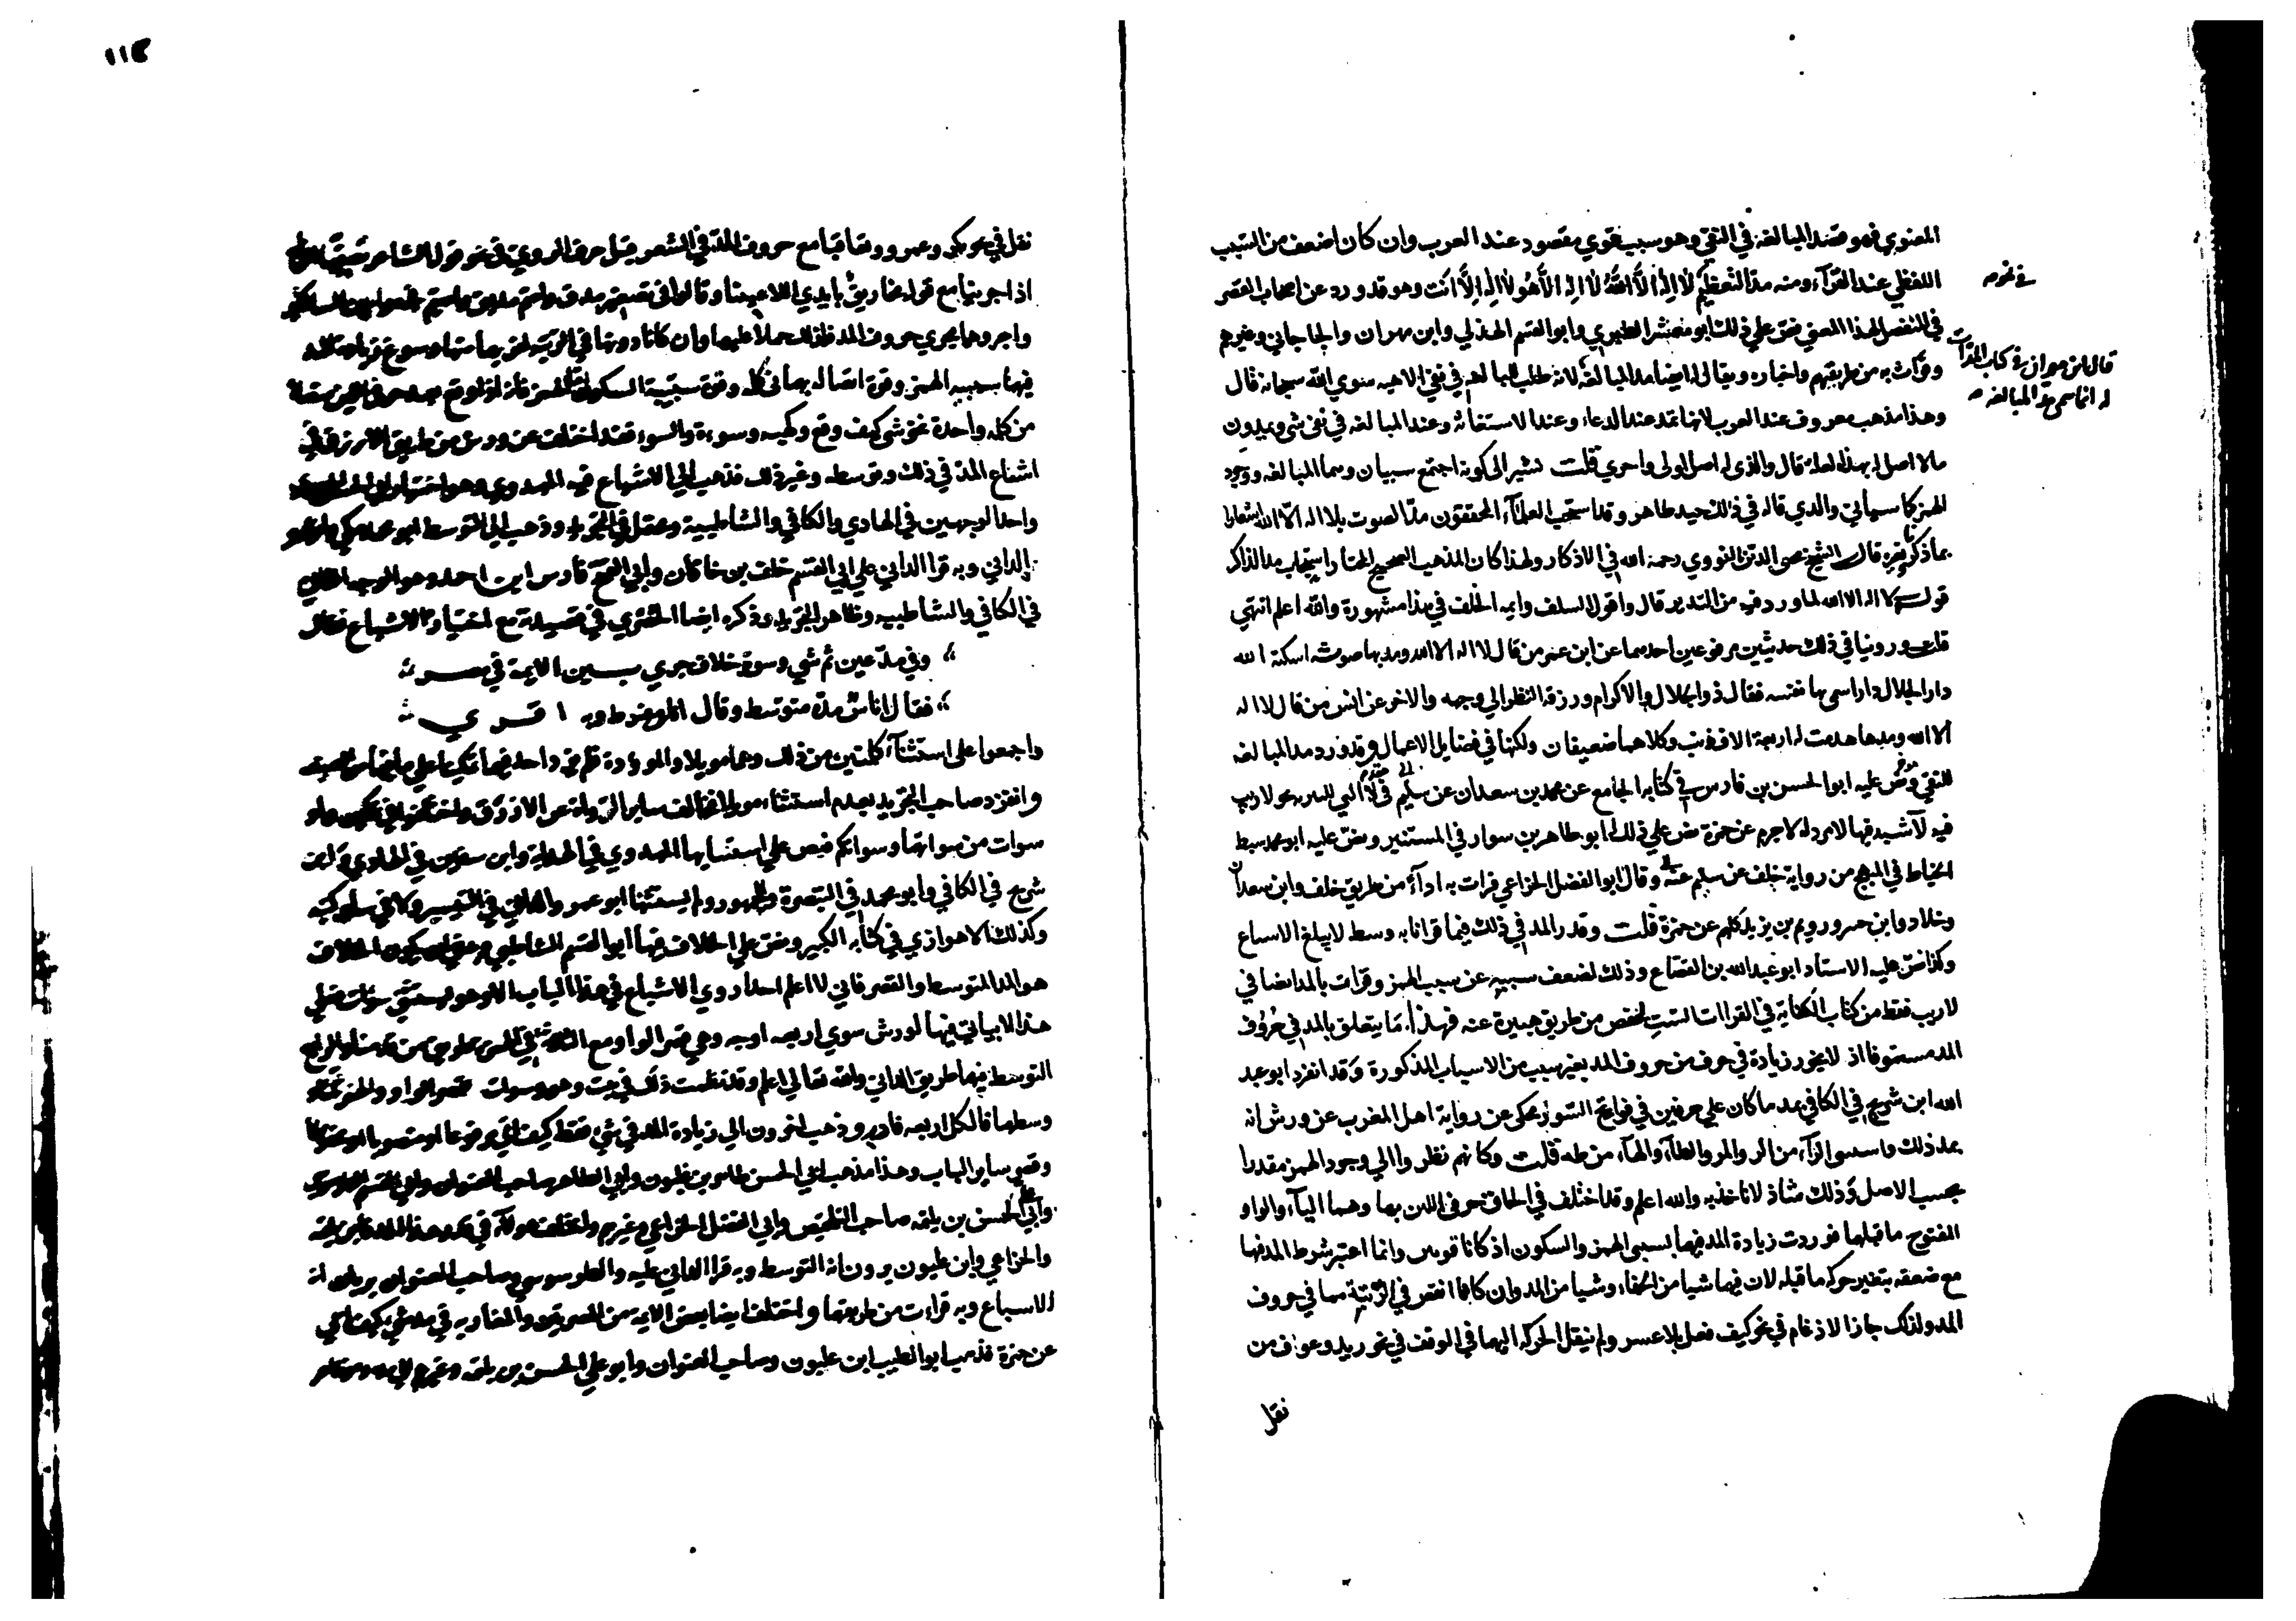 المعنوي فهو قصد المبالغة في النفي وهو سبب قوي مقصود عند العرب وان كان اضعف من السبب
اللفظي عند القرآء ومنه مد التعظيم لا اله الا الله لا اله الا هو لا اله الا انت وهو قد ورد عن اصحاب القصر
في نحو
في المنفصل لهذا المعني نص علي ذلك ابو معشر الطبري وابو القسم الهذلي وابن مهران والجاجاني وغيرهم
وقرات به من طريقهم واختاره ويقال له ايضا مد المبالغة لانه طلب للمبالغة في نفي الاهيه سوي الله سبحانه قال
قال ابن مهران في كتاب المدات
له انما سمي مد المبالغه
وهذا مذهب معروف عند العرب لانها تمد عند الدعاء وعند الاستغاثة وعند المبالغه في نفي شي ويمدون
مالا اصل له بهذه العلة قال والذي له اصل اولى واحري قلت نشير الى كونه اجتمع سببان وهما المبالغه ووجود
الهمز كما سياتي والذي قاله في ذلك جيد ظاهر وقد استحب العلمآء المحققون مد الصوت بلا اله الا الله اشعارا
بما ذكرنا وغيره قال الشيخ محيي الدين النووي رحمه الله في الاذكار ولهذا كان المذهب الصحيح المختار استحباب مد الذاكر
قوله لا اله الا الله لما ورد فيه من التدبر قال واقوال السلف وايمة الخلف في هذا مشهورة والله اعلم انتهي
قلت وروينا في ذلك حديثين مرفوعين احدهما عن ابن عمر من قال لا اله الا الله ومد بها صوته اسكنه الله
دار الجلال دارا سمي بها نفسه فقال ذو الجلال والاكرام ورزقه النظر الي وجهه والاخر عن انس من قال لا اله
الا الله ومدها هدمت له اربعة الاف ذنب وكلاهما ضعيفان ولكنها في فضايل الاعمال وقد ورد مد المبالغه
للنفي ونص عليه ابو الحسن بن فارس في كتابه الجامع عن محمد بن سعدان عن سليم في لا التي للتبريه نحو لا ريب
فيه لا شية فيها لا مرد له لا جرم عن حمزة نص علي ذلك ابو طاهر بن سوار في المستنير ونص عليه ابو محمد سبط
الخياط في المبهج من رواية خلف عن سليم عنه وقال ابو الفضل الخزاعي قرات به ادآء من طريق خلف وابن سعدان
وخلاد وابن جبير ورويم بن يزيد كلهم عن حمزة قلت وقدر المد في ذلك فيما قرانا به وسط لا يبلغ الاشباع
وكذا نص عليه الاستاد ابو عبد الله بن القصاع وذلك لضعف سببه عن سبب الهمز وقرات بالمد ايضا في
لا ريب فقط من كتاب الكفاية في القراات الست لحفص من طريق هبيرة عنه فهذا ما يتعلق بالمد في حروف
المد مستوفا اذ لا يجوز زيادة في حرف من حروف المد بغير سبب من الاسباب المذكورة وقد انفرد ابو عبد
الله ابن شريح في الكافي بمد ما كان علي حرفين في فواتح السور فحكي عن رواية اهل المغرب عن ورش انه
يمد ذلك واستثني الرآء من الر والمر والطآء والهآء من طه قلت وكانهم نظروا الي وجود الهمز مقدرا
بحسب الاصل وذلك شاذ لا ناخذ به والله اعلم وقد اختلف في الحاق حرفي اللين بها وهما اليآء والواو
المفتوح ما قبلها فوردت زيادة المد فيهما بسببي الهمز والسكون اذ كانا قويين وانما اعتبر شرط المد فيهما
مع ضعفه بتغير حركة ما قبله لان فيهما شيا من الخفاء وشيا من المد وان كانا انقص في الرتبة مما في حروف
المد ولذلك جاز الادغام في نحو كيف فعل بلا عسر ولم ينقل الحركة اليهما في الوقف في نحو زيد وعوف من
نقل
١١٤
نقل في نحو بكر وعمرو وتعاقبا مع حروف المد في الشعر قبل حرف الروي في نحو قول الشاعر
اذا جرينا مع قوله مخاريق بايدي اللاعبينا وقالوا في تصغير مدق واصم مديق واصيم فجمعوا بين الساكنين
واجروهما مجري حروف المد فلذلك حملا عليهما وان كانا دونها في الرتبة لقربهما منها وسوغ زيادة المد
فيهما سببية الهمز وقوة اتصاله بهما في كلمة وقوة سببية السكون
من كلمة واحدة نحو شي كيف وقع وكهيه وسوءة والسوء فقد اختلف عن ورش من طريق الازرق في
اشباع المد في ذلك وتوسطه وغير ذلك فذهب الي الاشباع فيه المهدوي وهو اختيار ابي الحسن الحصري
واحد الوجهين في الهادي والكافي والشاطبية ومحتمل في التجريد وذهب الي التوسط ابو محمد مكي وابو عمرو
الداني وبه قرا الداني علي ابي القسم خلف بن خاقان وابي الفتح فارس ابن احمد وهو الوجه الثاني
في الكافي والشاطبيه وظاهر التجريد وذكره ايضا الحصري في قصيدته مع اختياره الاشباع فقال
وفي مد عين ثم شي وسوءة خلاف جري بين الايمة في مصر
فقال اناس مده متوسط وقال اناس مفرط وبه اقري
واجمعوا على استثنآء كلمتين من ذلك وهما مويلا والموودة فلم يزد احد فيهما تمكينا علي ما فيهما من الصيغه
وانفرد صاحب التجريد بعدم استثناء مويلا فخالف ساير الرواة عن الازرق واختلفوا في تمكين واو
سوات من سواتهما وسواتكم فنص علي استثنايها المهدوي في الهداية وابن سفين في الهادي وابن
شريح في الكافي وابو محمد في التبصرة والجمهور ولم يستثنها ابو عمرو الداني في التيسير ولا في ساير كتبه
وكذلك الاهوازي في كتابه الكبير ونص علي الخلاف فيها ابو القسم الشاطبي وينبغي ان يكون الخلاف
هو المد المتوسط والقصر فاني لا اعلم احدا روي الاشباع في هذا الباب الا وهو يستثني سوات فعلي
هذا لا ياتي فيها لورش سوي اربعة اوجه وهي قصر الواو مع الثلاثة في الهمز طريق من قدمنا والرابع
التوسط فيهما طريق الداني والله تعالي اعلم وقد نظمت ذلك في بيت وهو وسوات قصر الواو والهمز ثلثا
ووسطهما فالكل اربعة فادر وذهب اخرون الي زيادة المد في شي فقط كيف اتي مرفوعا او منصوبا او مخفوضا
وقصر ساير الباب وهذا مذهب ابي الحسن طاهر بن غلبون وابي الطاهر صاحب العنوان وابي القسم الطرسوسي
وابي علي الحسن بن بليمه صاحب التلخيص وابي الفضل الخزاعي وغيرهم واختلف هولاء في قدر هذا المد فابن بليمة
والخزاعي وابن غلبون يرون انه التوسط وبه قرا الداني عليه والطرسوسي وصاحب العنوان يريان انه
الاشباع وبه قرات من طريقهما واختلف ايضا بعض الايمة من المصريين والمغاربه في مد شي كيف اتي
عن حمزة فذهب ابو الطيب ابن غلبون وصاحب العنوان وابو علي الحسن بن بليمة وغيرهم الي